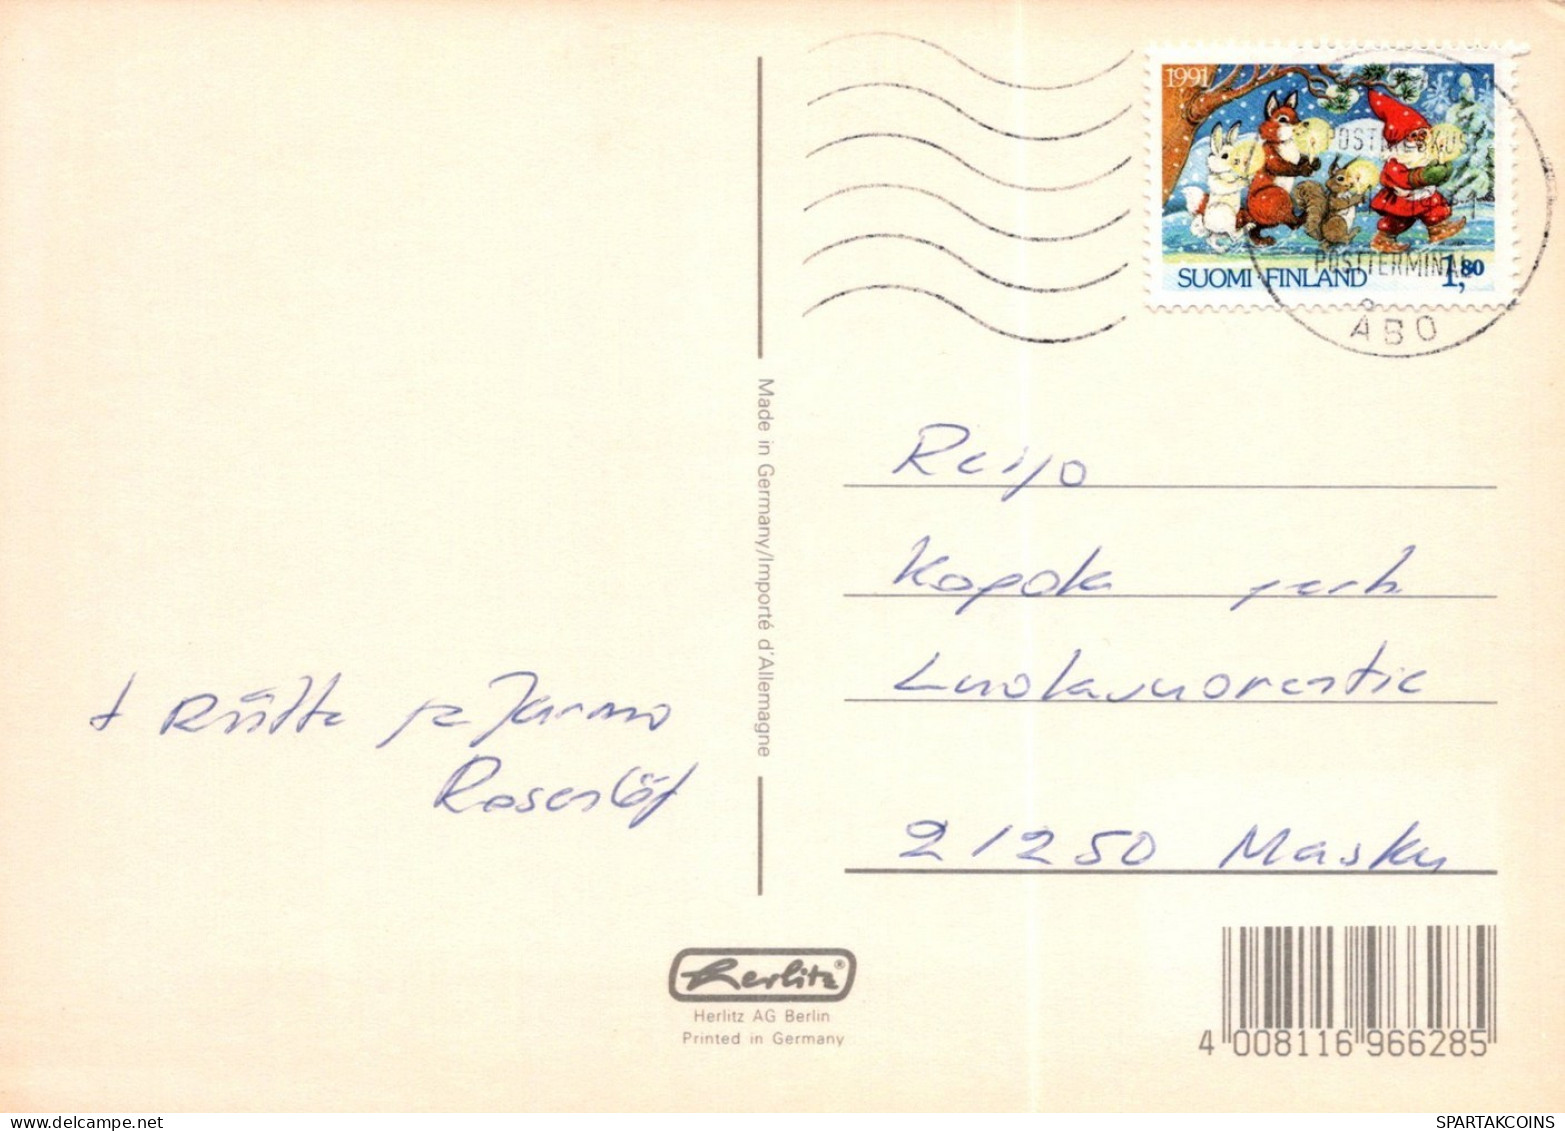 1991
POSTIKESKUS
POSTTERMINAL
ÅBO
SUOMI·FINLAND 1,80
Made in Germany/Importé d'Allemagne
Reijo
Kopola perh.
Luolavuorentie
21250 Masku
+ Riitta ja Jarmo
Rosenlöf
Herlitz®
Herlitz AG Berlin
Printed in Germany
4 008116 966285
SPARTAKCOINS